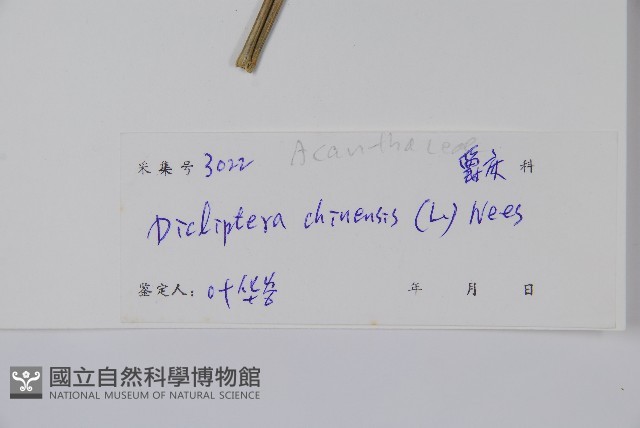 Acanthaceae
采集号 3022 爵床 科
Dicliptera chinensis (L.) Nees
鉴定人: 叶华谷
年 月 日
國立自然科學博物館
NATIONAL MUSEUM OF NATURAL SCIENCE